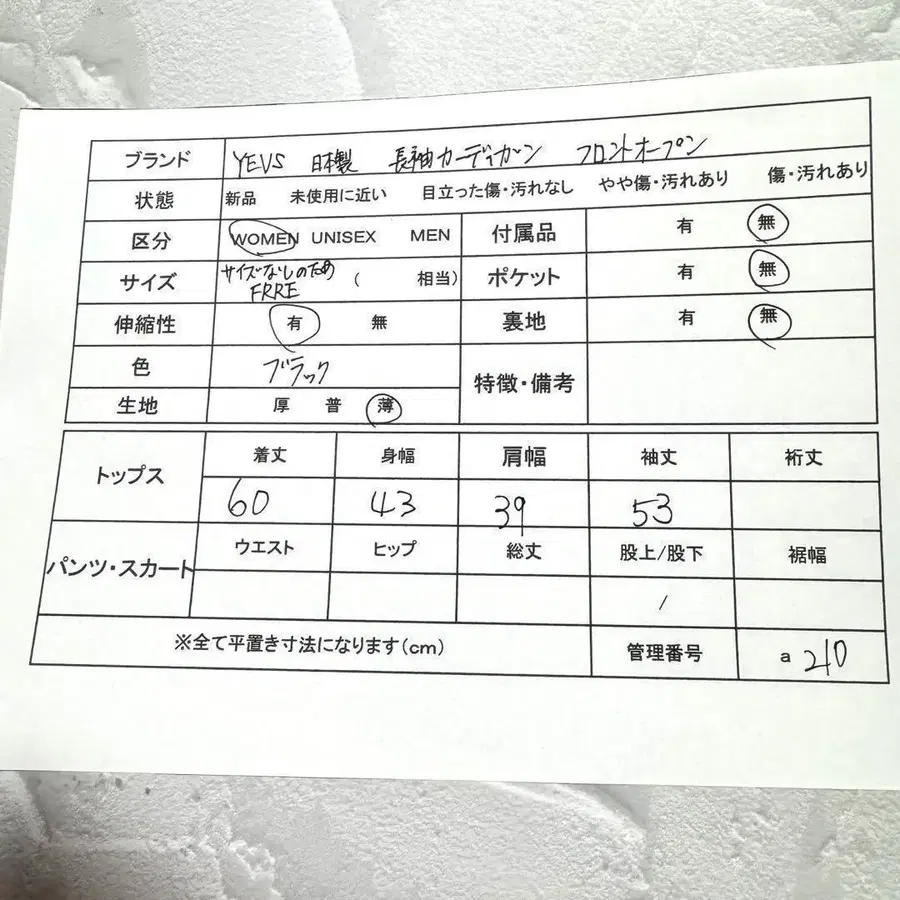 ブランド YEVS 日本製 長袖カーディガン フロントオープン
状態 新品 未使用に近い 目立った傷・汚れなし やや傷・汚れあり 傷・汚れあり
区分 WOMEN UNISEX MEN 付属品 有 無
サイズ サイズなしのため FRRE ( 相当) ポケット 有 無
伸縮性 有 無 裏地 有 無
色 ブラック 特徴・備考
生地 厚 普 薄
トップス 着丈 身幅 肩幅 袖丈 裄丈
60 43 39 53
パンツ・スカート ウエスト ヒップ 総丈 股上/股下 裾幅
/
※全て平置き寸法になります(cm) 管理番号 a 210